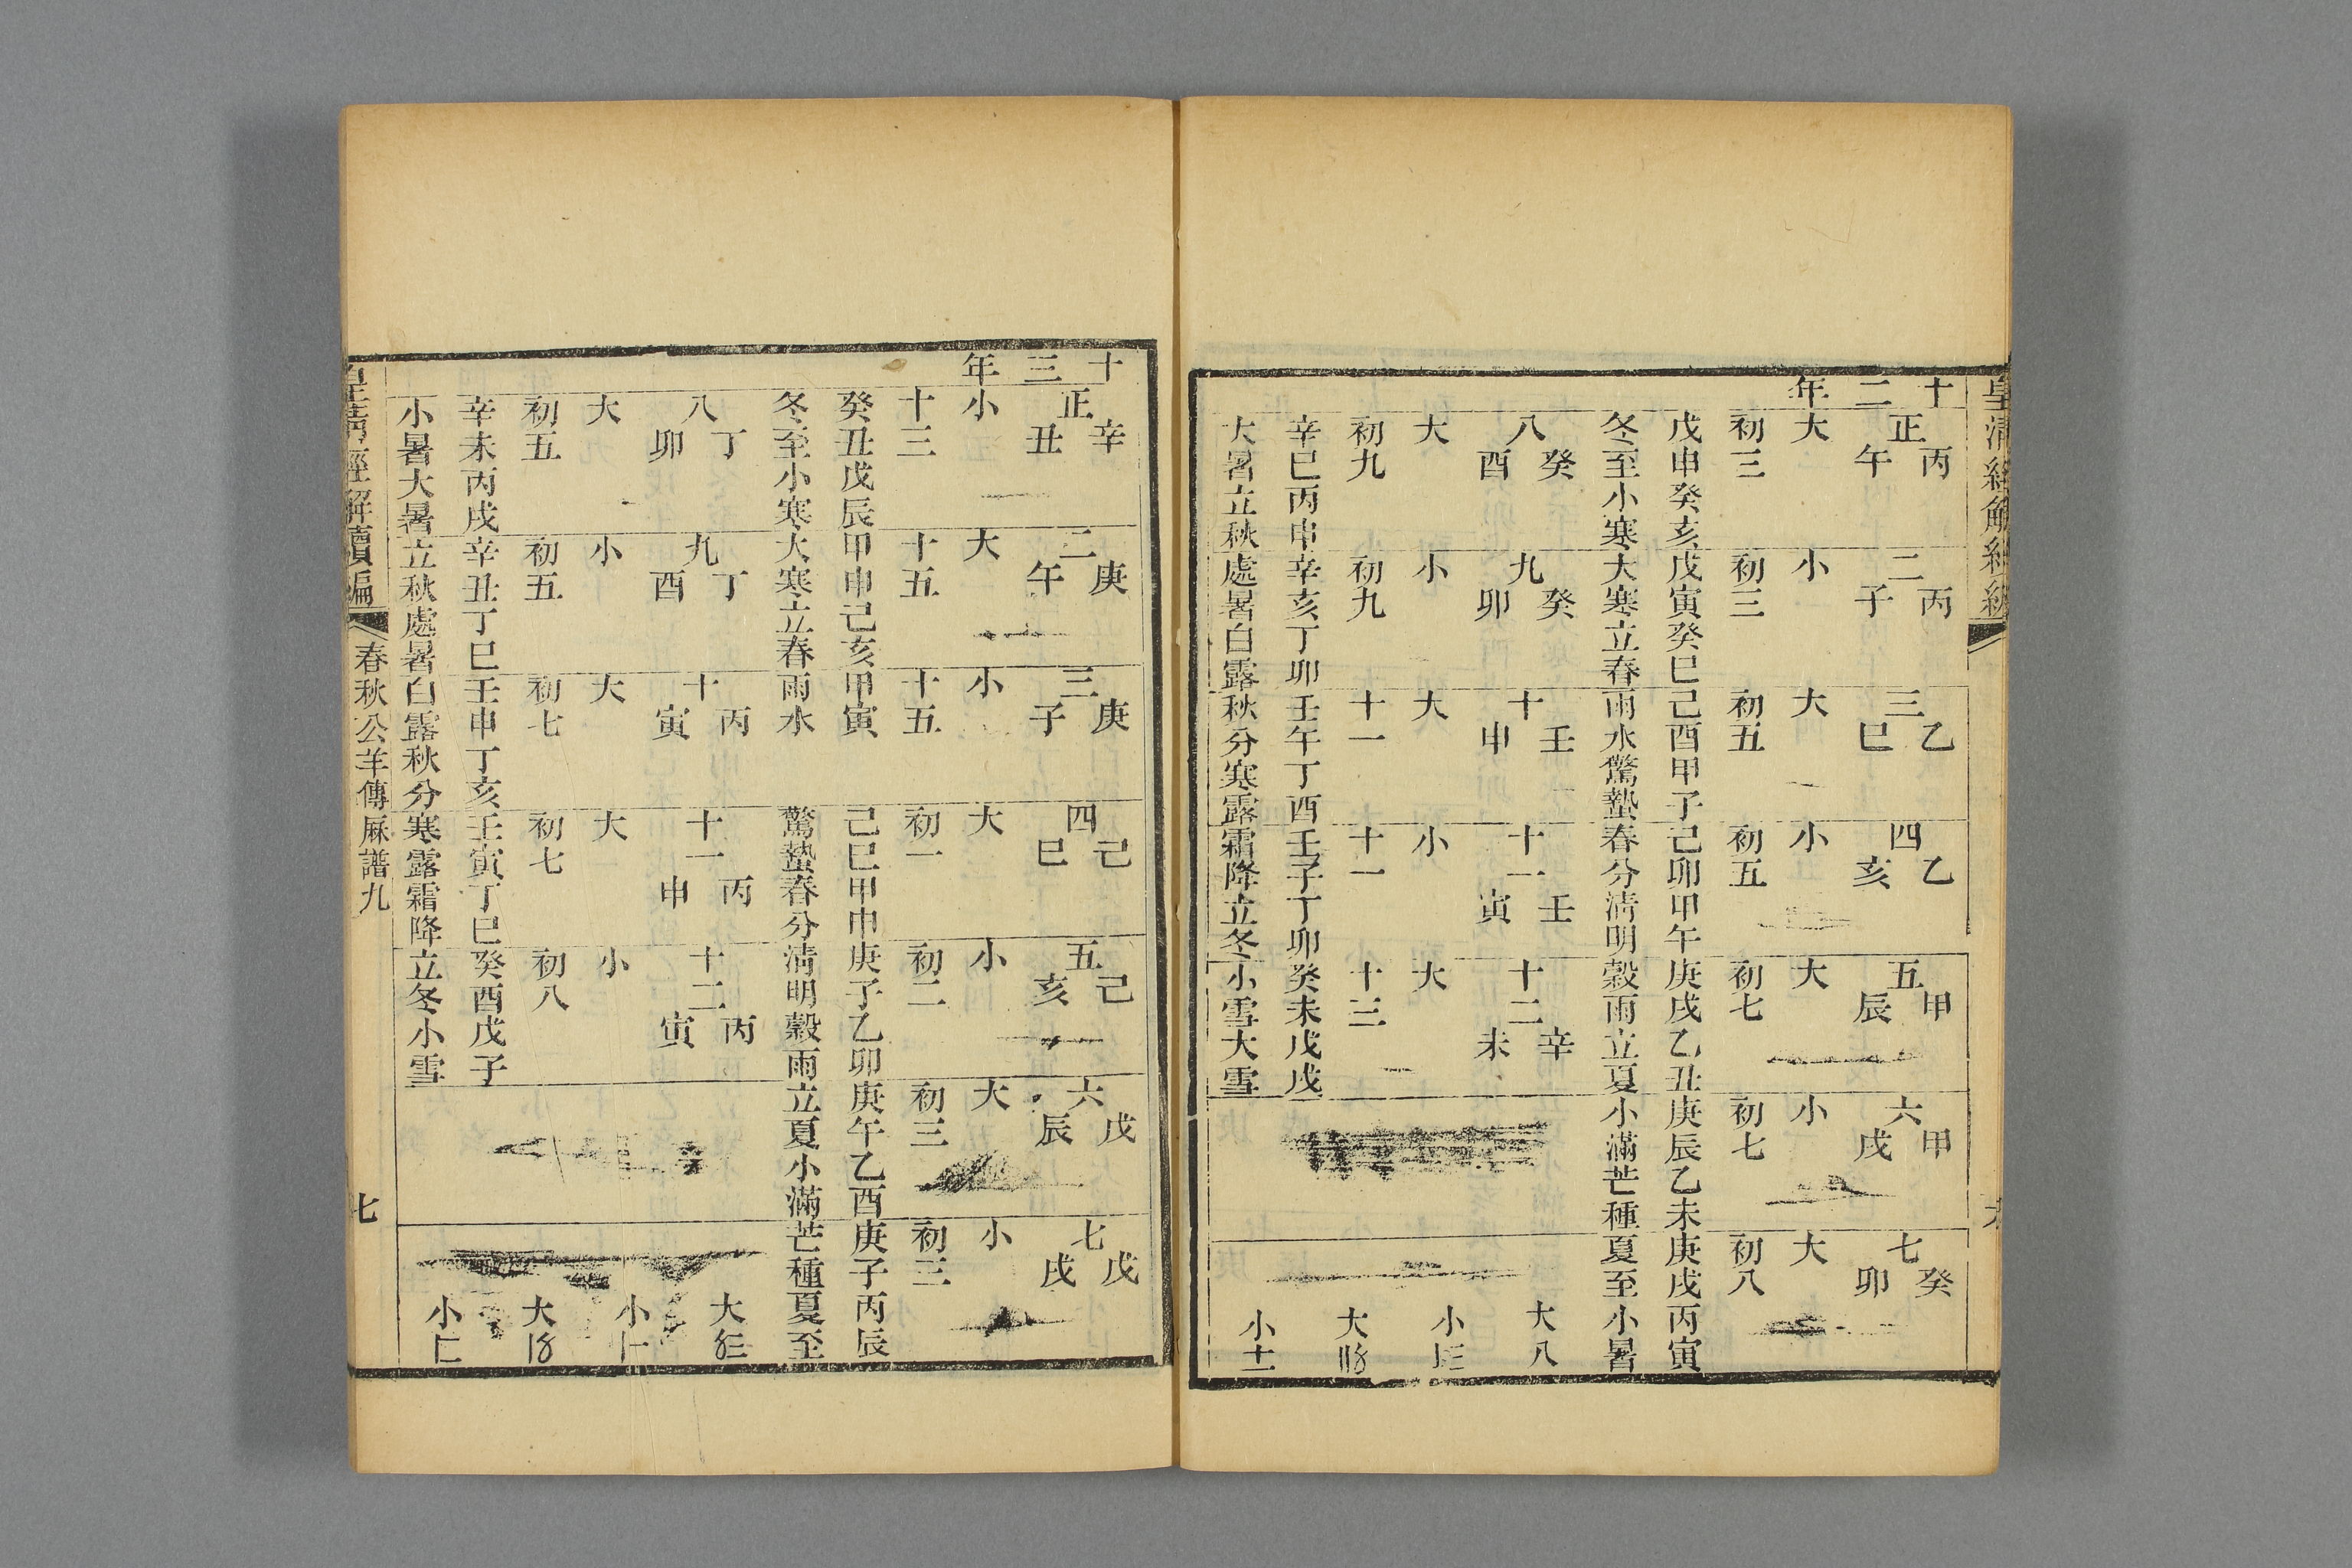 皇清經解續編
十二年
正 丙午
大
初三
戊申癸亥
冬至小寒
二 丙子
小
初三
戊寅癸巳
大寒立春
三 乙巳
大
初五
己酉甲子
雨水驚蟄
四 乙亥
小
初五
己卯甲午
春分清明
五 甲辰
大
初七
庚戌乙丑
穀雨立夏
六 甲戌
小
初七
庚辰乙未
小滿芒種
七 癸卯
大
初八
庚戌丙寅
夏至小暑
八 癸酉
大
初九
辛巳丙申
大暑立秋
九 癸卯
小
初九
辛亥丁卯
處暑白露
十 壬申
大
十一
壬午丁酉
秋分寒露
十一 壬寅
小
十一
壬子丁卯
霜降立冬
十二 辛未
大
十三
癸未戊戌
小雪大雪
大八
小
大
小
十三年
正 辛丑
小
十三
癸丑戊辰
冬至小寒
二 庚午
大
十五
甲申己亥
大寒立春
三 庚子
小
十五
甲寅
雨水
四 己巳
大
初一
己巳甲申
驚蟄春分
五 己亥
小
初二
庚子乙卯
清明穀雨
六 戊辰
大
初三
庚午乙酉
立夏小滿
七 戊戌
小
初三
庚子丙辰
芒種夏至
八 丁卯
大
初五
辛未丙戌
小暑大暑
九 丁酉
小
初五
辛丑丁巳
立秋處暑
十 丙寅
大
初七
壬申丁亥
白露秋分
十一 丙申
大
初七
壬寅丁巳
寒露霜降
十二 丙寅
小
初八
癸酉戊子
立冬小雪
大
小
大
小
皇清經解續編
春秋公羊傳厤譜九
七